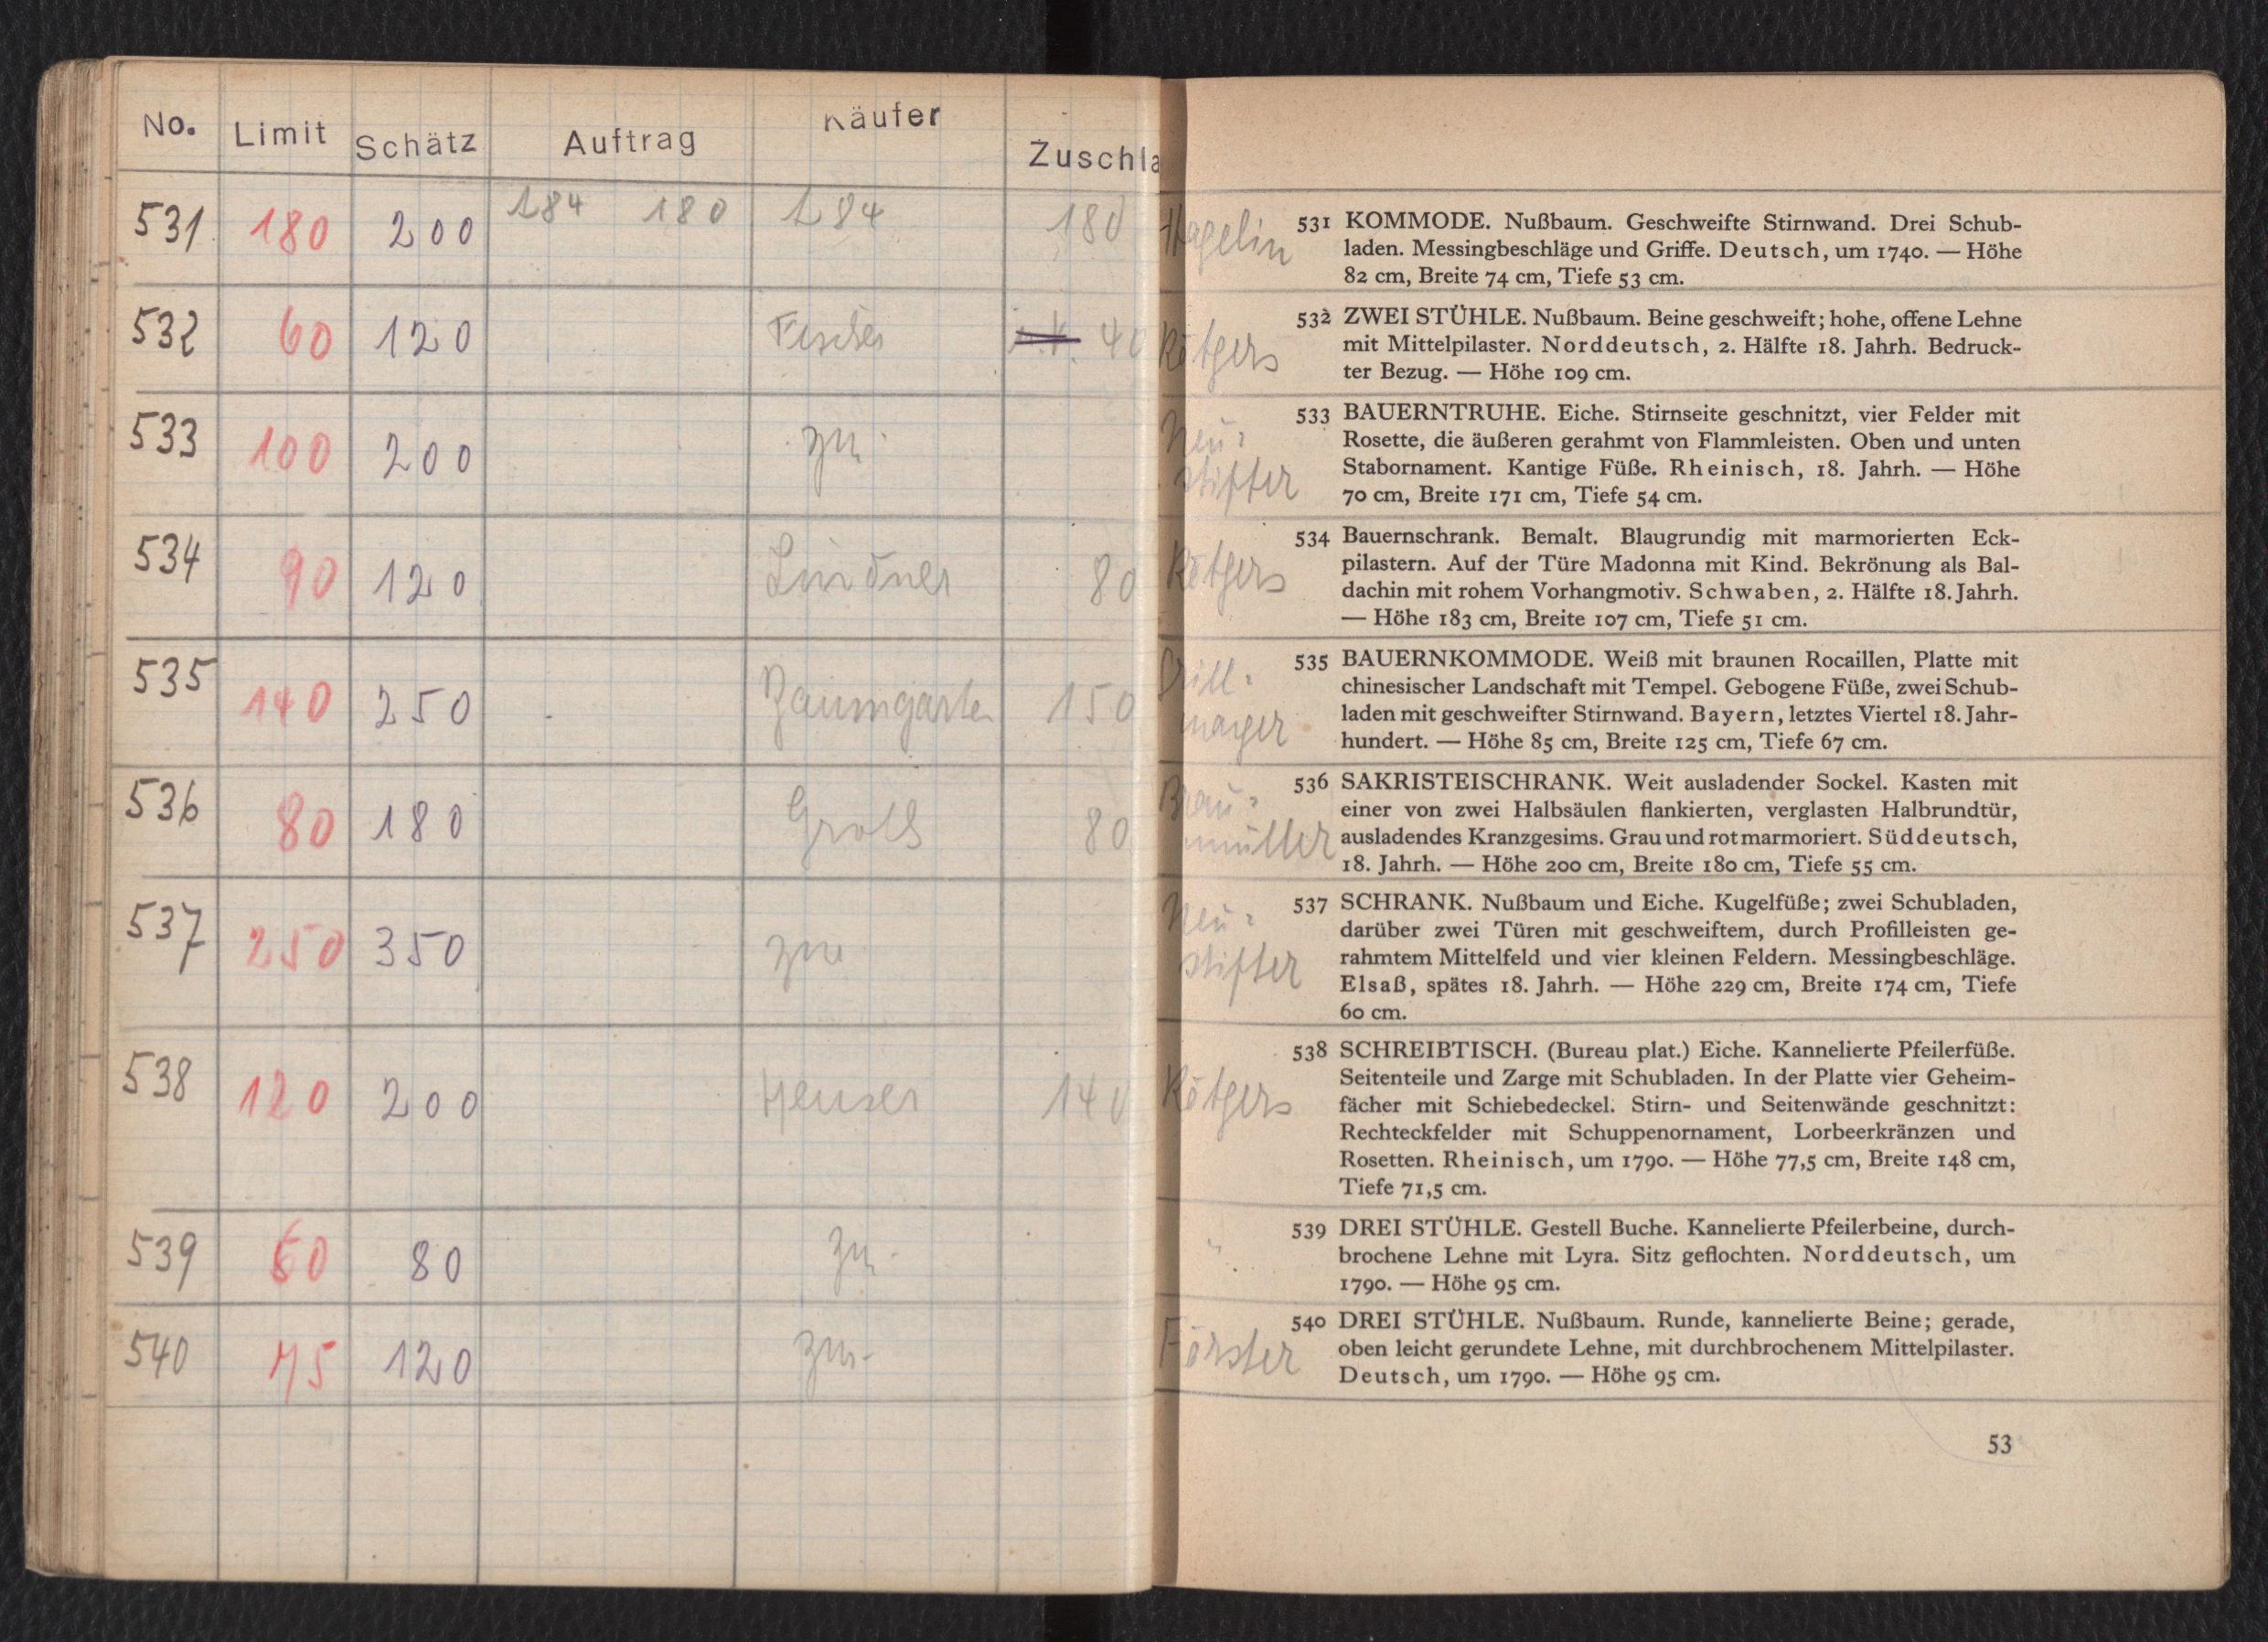 No. Limit Schätz Auftrag Käufer Zuschla
531 180 200 184 180 184 180
532 60 120 Fischer 40
533 100 200 zu
534 90 120 Lindner 80
535 140 250 Baumgarten 150
536 80 180 Groß 80
537 250 350 zur
538 120 200 Heuser 140
539 60 80 zu
540 75 120 zur
Hagelin
531 KOMMODE. Nußbaum. Geschweifte Stirnwand. Drei Schub-
laden. Messingbeschläge und Griffe. Deutsch, um 1740. — Höhe
82 cm, Breite 74 cm, Tiefe 53 cm.
Rötgers
532 ZWEI STÜHLE. Nußbaum. Beine geschweift; hohe, offene Lehne
mit Mittelpilaster. Norddeutsch, 2. Hälfte 18. Jahrh. Bedruck-
ter Bezug. — Höhe 109 cm.
Neu-
stifter
533 BAUERNTRUHE. Eiche. Stirnseite geschnitzt, vier Felder mit
Rosette, die äußeren gerahmt von Flammleisten. Oben und unten
Stabornament. Kantige Füße. Rheinisch, 18. Jahrh. — Höhe
70 cm, Breite 171 cm, Tiefe 54 cm.
Rötgers
534 Bauernschrank. Bemalt. Blaugrundig mit marmorierten Eck-
pilastern. Auf der Türe Madonna mit Kind. Bekrönung als Bal-
dachin mit rohem Vorhangmotiv. Schwaben, 2. Hälfte 18. Jahrh.
— Höhe 183 cm, Breite 107 cm, Tiefe 51 cm.
mayer
535 BAUERNKOMMODE. Weiß mit braunen Rocaillen, Platte mit
chinesischer Landschaft mit Tempel. Gebogene Füße, zwei Schub-
laden mit geschweifter Stirnwand. Bayern, letztes Viertel 18. Jahr-
hundert. — Höhe 85 cm, Breite 125 cm, Tiefe 67 cm.
Brau-
müller
536 SAKRISTEISCHRANK. Weit ausladender Sockel. Kasten mit
einer von zwei Halbsäulen flankierten, verglasten Halbrundtür,
ausladendes Kranzgesims. Grau und rot marmoriert. Süddeutsch,
18. Jahrh. — Höhe 200 cm, Breite 180 cm, Tiefe 55 cm.
Neu-
stifter
537 SCHRANK. Nußbaum und Eiche. Kugelfüße; zwei Schubladen,
darüber zwei Türen mit geschweiftem, durch Profilleisten ge-
rahmtem Mittelfeld und vier kleinen Feldern. Messingbeschläge.
Elsaß, spätes 18. Jahrh. — Höhe 229 cm, Breite 174 cm, Tiefe
60 cm.
Rötgers
538 SCHREIBTISCH. (Bureau plat.) Eiche. Kannelierte Pfeilerfüße.
Seitenteile und Zarge mit Schubladen. In der Platte vier Geheim-
fächer mit Schiebedeckel. Stirn- und Seitenwände geschnitzt:
Rechteckfelder mit Schuppenornament, Lorbeerkränzen und
Rosetten. Rheinisch, um 1790. — Höhe 77,5 cm, Breite 148 cm,
Tiefe 71,5 cm.
"
539 DREI STÜHLE. Gestell Buche. Kannelierte Pfeilerbeine, durch-
brochene Lehne mit Lyra. Sitz geflochten. Norddeutsch, um
1790. — Höhe 95 cm.
Förster
540 DREI STÜHLE. Nußbaum. Runde, kannelierte Beine; gerade,
oben leicht gerundete Lehne, mit durchbrochenem Mittelpilaster.
Deutsch, um 1790. — Höhe 95 cm.
53